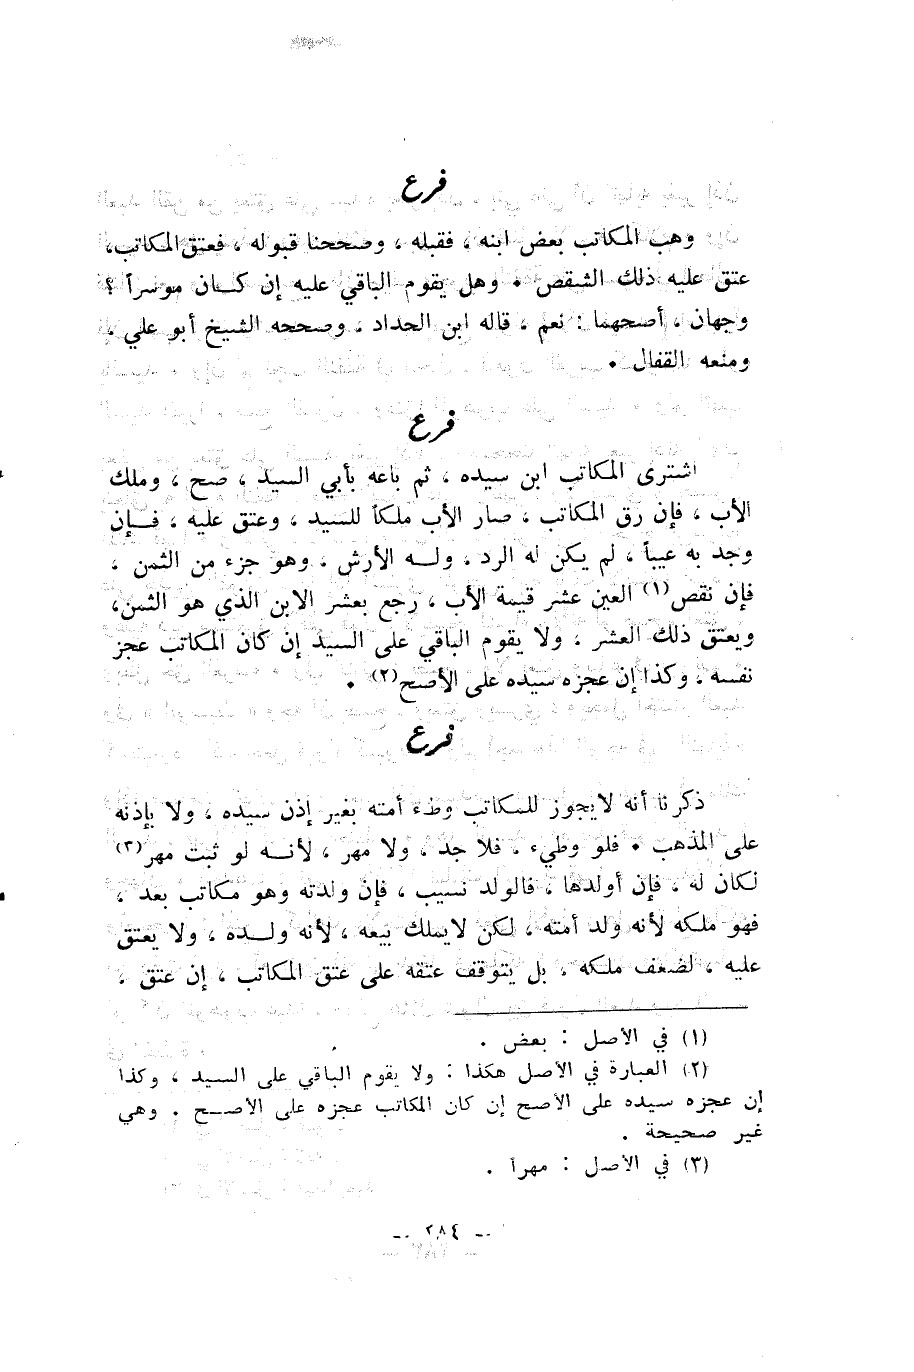 فرع
وهب المكاتب بعض ابنه ، فقبله ، وصححنا قبوله ، فعتق المكاتب،
عتق عليه ذلك الشقص . وهل يقوم الباقي عليه إن كان موسراً ؟
وجهان ، أصحهما : نعم ، قاله ابن الحداد ، وصححه الشيخ أبو علي ،
ومنعه القفال .
فرع
اشترى المكاتب ابن سيده ، ثم باعه بأبي السيد ، صح ، وملك
الأب ، فإن رق المكاتب ، صار الأب ملكاً للسيد ، وعتق عليه ، فإن
وجد به عيباً ، لم يكن له الرد ، وله الأرش ، وهو جزء من الثمن ،
فإن نقص(١) العين عشر قيمة الأب ، رجع بعشر الابن الذي هو الثمن،
ويعتق ذلك العشر ، ولا يقوم الباقي على السيد إن كان المكاتب عجز
نفسه ، وكذا إن عجزه سيده على الأصح(٢) .
فرع
ذكرنا أنه لايجوز للمكاتب وطء أمته بغير إذن سيده ، ولا بإذنه
على المذهب . فلو وطيء ، فلا حد ، ولا مهر ، لأنه لو ثبت مهر(٣)
لكان له ، فإن أولدها ، فالولد نسيب ، فإن ولدته وهو مكاتب بعد ،
فهو ملكه لأنه ولد أمته ، لكن لايملك بيعه ، لأنه ولده ، ولا يعتق
عليه ، لضعف ملكه ، بل يتوقف عتقه على عتق المكاتب ، إن عتق ،
(١) في الأصل : بعض .
(٢) العبارة في الأصل هكذا : ولا يقوم الباقي على السيد ، وكذا
إن عجزه سيده على الأصح إن كان المكاتب عجزه على الأصح . وهي
غير صحيحة .
(٣) في الأصل : مهراً .
- ٢٨٤ -